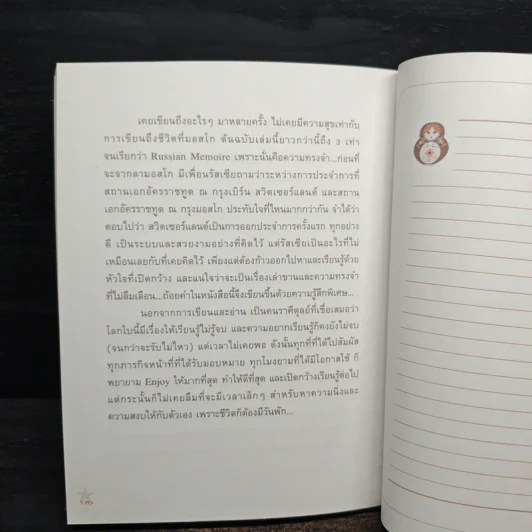 เคยเขียนถึงอะไรๆ มาหลายครั้ง ไม่เคยมีความสุขเท่ากับ
การเขียนถึงชีวิตที่มอสโก ต้นฉบับเล่มนี้ยาวกว่านี้ถึง 3 เท่า
จนเรียกว่า Russian Memoire เพราะนั่นคือความทรงจำ...ก่อนที่
จะจากลามอสโก มีเพื่อนรัสเซียถามว่าระหว่างการประจำการที่
สถานเอกอัครราชทูต ณ กรุงเบิร์น สวิตเซอร์แลนด์ และสถาน
เอกอัครราชทูต ณ กรุงมอสโก ประทับใจที่ไหนมากกว่ากัน จำได้ว่า
ตอบไปว่า สวิตเซอร์แลนด์เป็นการออกประจำการครั้งแรก ทุกอย่าง
ดี เป็นระบบและสวยงามอย่างที่คิดไว้ แต่รัสเซียเป็นอะไรที่ไม่
เหมือนเลยกับที่เคยคิดไว้ เพียงแต่ต้องก้าวออกไปหาและเรียนรู้ด้วย
หัวใจที่เปิดกว้าง และแน่ใจว่าจะเป็นเรื่องเล่าขานและความทรงจำ
ที่ไม่ลืมเลือน...ถ้อยคำในหนังสือนี้จึงเขียนขึ้นด้วยความรู้สึกพิเศษ...
นอกจากการเขียนและอ่าน เป็นคนราศีตุลย์ที่เชื่อเสมอว่า
โลกใบนี้มีเรื่องให้เรียนรู้ไม่รู้จบ และความอยากเรียนรู้ก็คงยังไม่จบ
(จนกว่าจะรับไม่ไหว) แต่เวลาไม่เคยพอ ดังนั้นทุกที่ที่ได้ไปสัมผัส
ทุกภารกิจหน้าที่ที่ได้รับมอบหมาย ทุกโมงยามที่ได้มีโอกาสใช้ ก็
พยายาม Enjoy ให้มากที่สุด ทำให้ดีที่สุด และเปิดกว้างเรียนรู้ต่อไป
แต่กระนั้นก็ไม่เคยลืมที่จะมีเวลาเล็กๆ สำหรับหาความนิ่งและ
ความสงบให้กับตัวเอง เพราะชีวิตก็ต้องมีวันพัก...